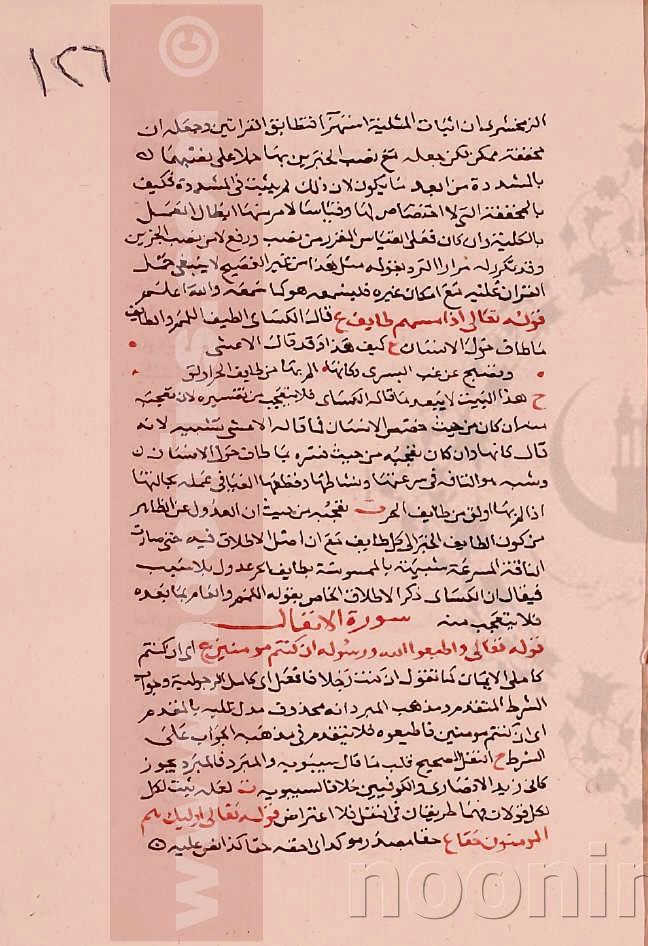 ١٢٦
الزمخشرى ان اثبات المثلية استهزأ فتطابق القراتين وجعله ان
مخففة ممكن لكن جعله مع نصب الجزين بها حملا على
بالمشددة من ابعد ما يكون لان ذلك لم يثبت فى المشددة فكيف
بالمخففة التى لا اختصاص لها وقياسا لامر منها ابطال العمل
بالكلية وان كان فعلى القياس الفرر من نصب ورفع لا من نصب الجزين
وقد تكرر له مرارا الرد بقوله مثل بعدا من غير الفصيح لا ينبغى حمل
القران عليه مع امكان غيره فليسمعه هو كما سمعه والله اعلم
قوله تعالى اذا مسهم طايف ع قال الكساى الطيف اللمم والطايف
ما طاف حول الانسان ع كيف هذا وقد قال الاعشى
وتصبح عن غب السرى وكانها الم بها من طايف الجن اولق
ح هذا البيت لا يبعد ما قاله الكساى فلا تعجب من تفسيره لان تعجبه
سوا كان من حيث خصص الانسان فما قاله الاعشى تشبيه لانه
قال كانها وان كان تعجبه من حيث فسره بما طاف حول الانسان
وشبه هو الناقة فى سرعتها ونشاطها وقطعها الفيافى عجلة بحالتها
اذا الم بها اولق من طايف الجن ت تعجبه من حيث ان العدول عن الظاهر
من كون الطايف الجن الى كل طايف مع ان اصل الاطلاق فيه حتى صارت
الناقة المسرعة شبيهة بالممسوسة بطايف اخر عدول بلا سبب
فيقال ان الكساى ذكر الاطلاق الخاص بقوله اللمم والعام بما بعده
فلا تعجب منه سورة الانفال
قوله تعالى واطيعوا الله ورسوله ان كنتم مومنين ع اى ان كنتم
كاملى الايمان كما تقول ان كنت رجلا فافعل اى كامل الرجولية وجواب
الشرط المتقدم ومذهب المبرد انه محذوف مدلل عليه بالمتقدم
اى ان كنتم مومنين فاطيعوه فلا يتقدم فى مذهبه الجواب على
الشرط ح انتقل الصحيح قلب ما قال سيبويه والمبرد فالمبرد يجوز
كابى زيد الانصارى والكوفيين خلافا لسيبويه ت لعله ثبت لكل
لكل قولان فهما طريقان فى النقل فلا اعتراض قوله تعالى اوليك هم
المومنون حقا ع حقا مصدر موكد اى احقه حقا كذا نص عليه
www.noonin.com ©
noonin